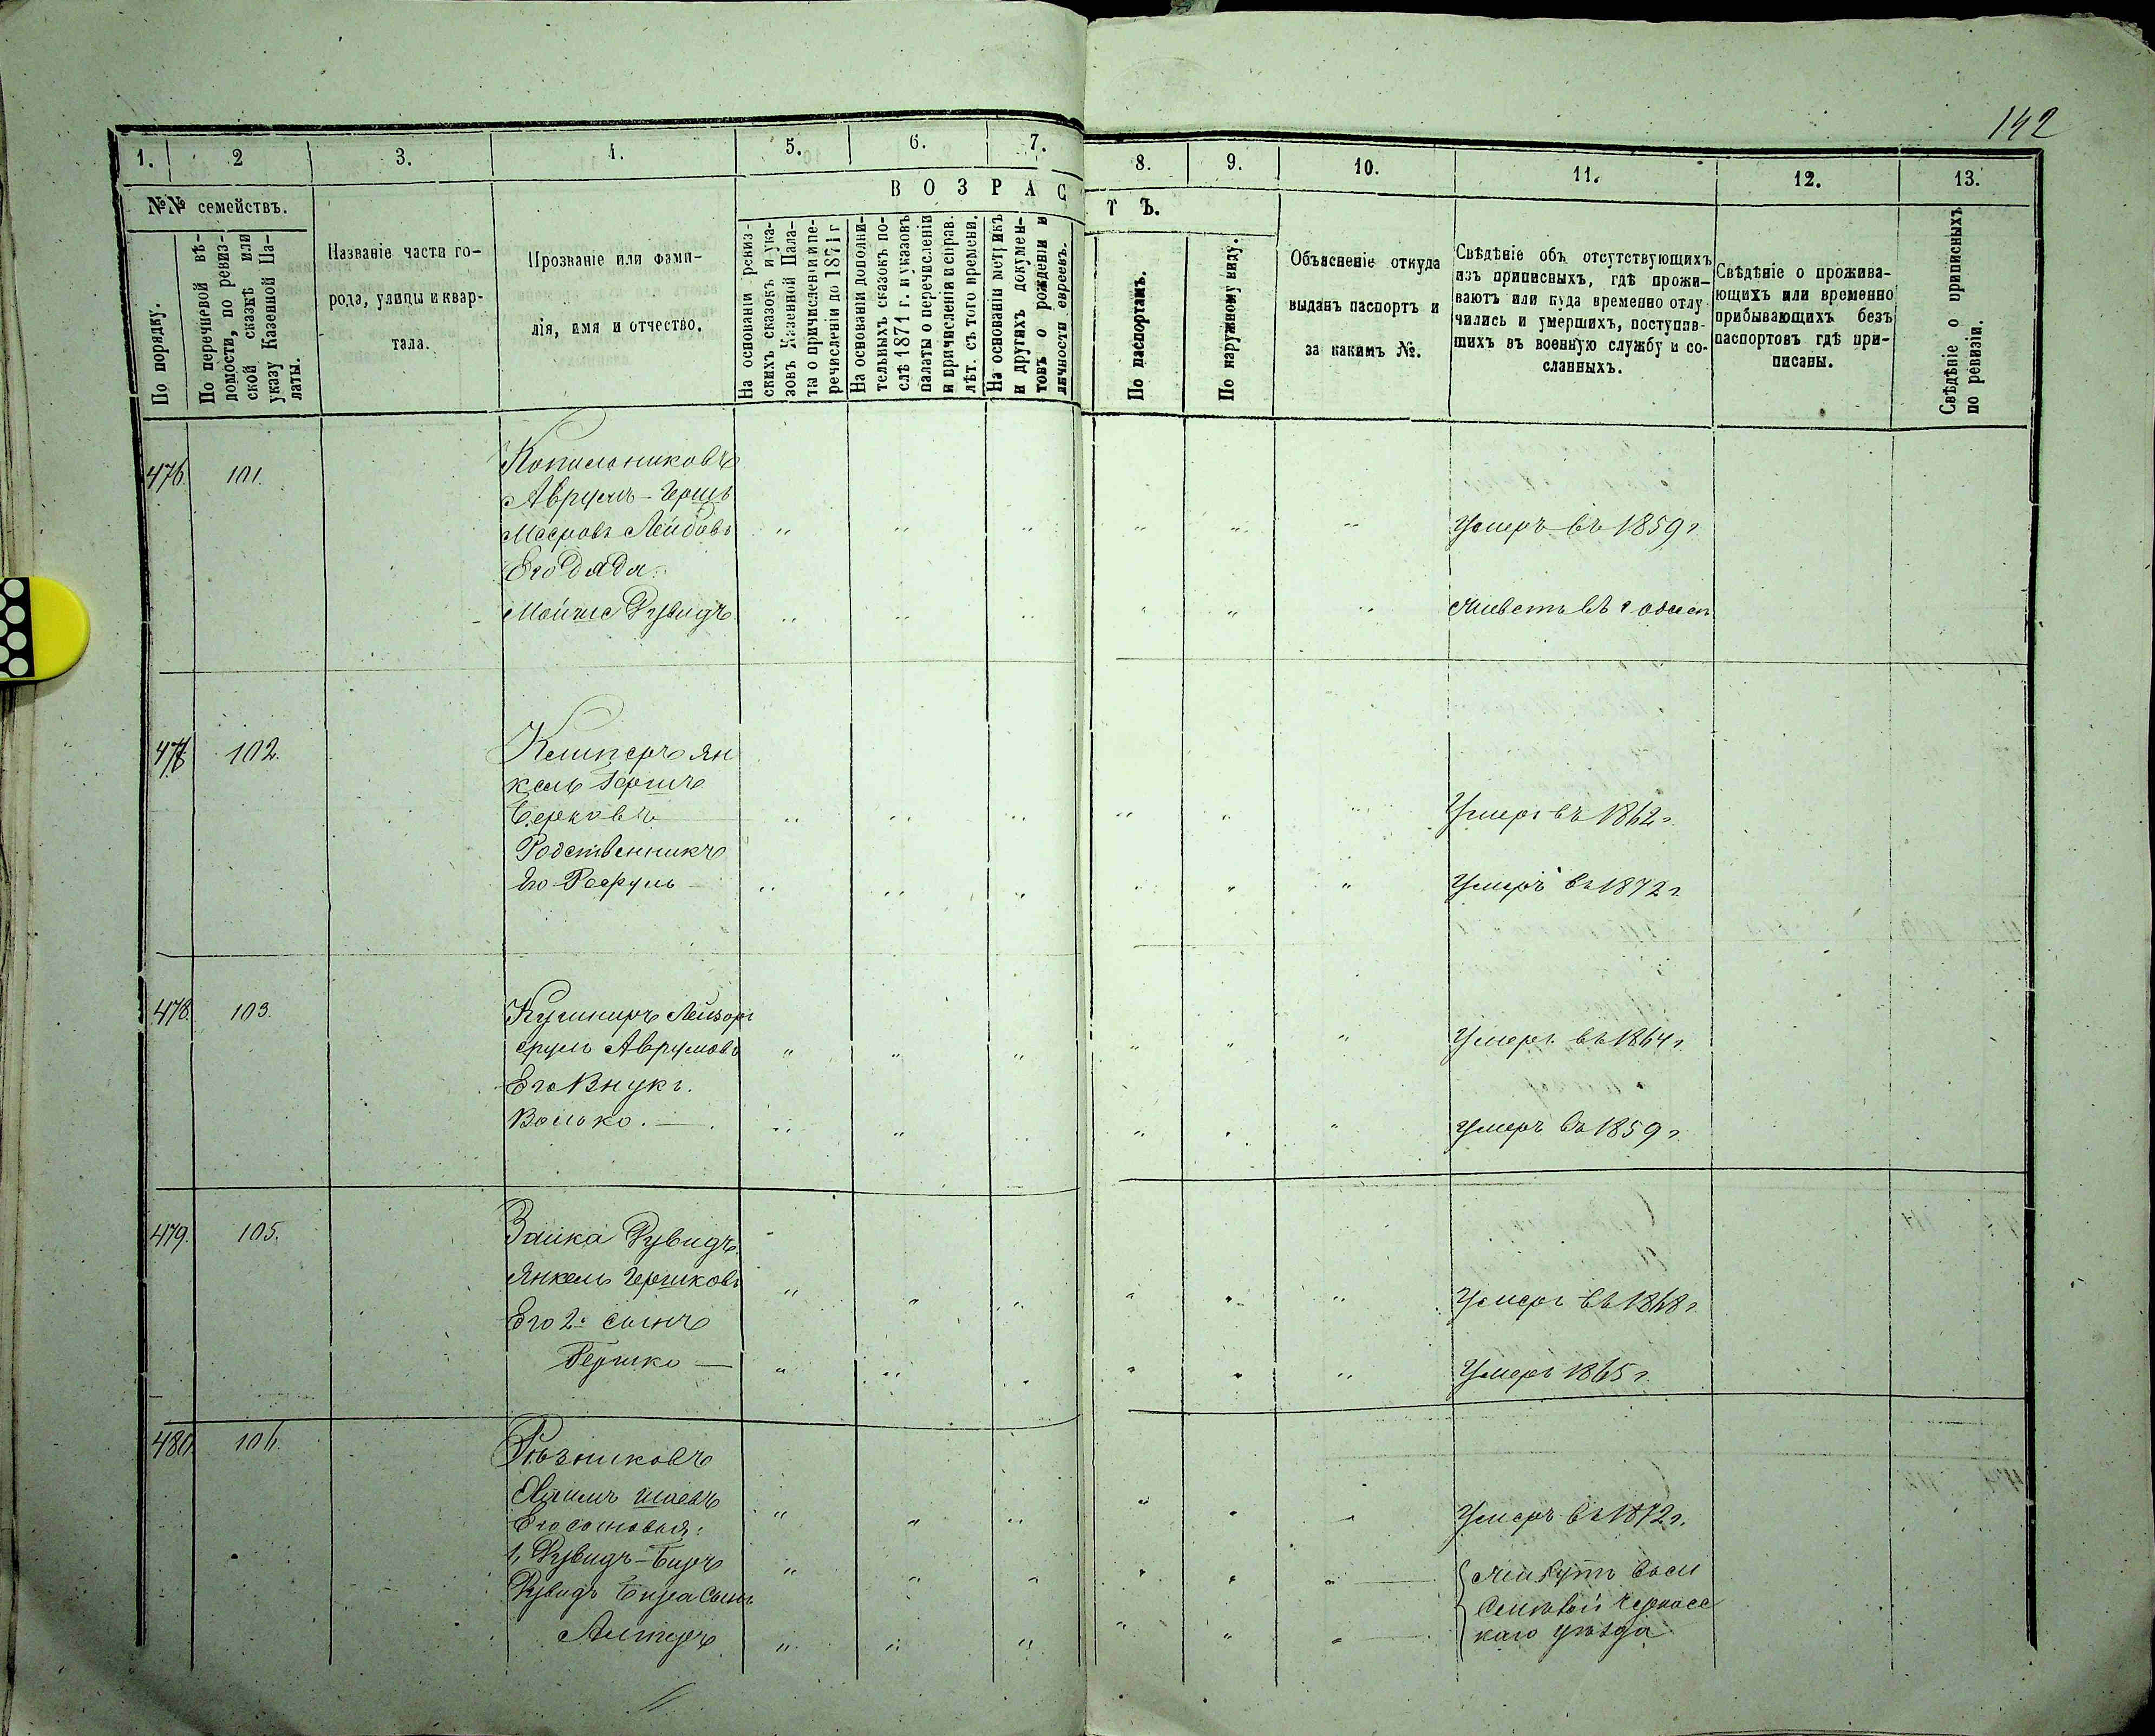 142
1. 2 3. 4. 5. 6. 7. 8. 9. 10. 11. 12. 13.
№№ семействъ.
По порядку.
По перечневой вѣ-
домости, по ревиз-
ской сказкѣ или
указу Казенной Па-
латы.
Названіе части го-
рода, улицы и квар-
тала.
Прозваніе или фами-
лія, имя и отчество.
ВОЗРАСТЪ.
На основаніи ревиз-
скихъ сказокъ и ука-
зовъ Казенной Пала-
та о причисленіи и пе-
речисленіи до 1871 г
На основаніи дополни-
тельныхъ сказокъ по-
слѣ 1871 г. и указовъ
палаты о перечисленіи
и причисленіи исправ.
лѣт. съ того времени.
На основаніи метрикъ
и другихъ докумен-
товъ о рожденіи и
личности евреевъ.
По паспортамъ.
По наружному виду.
Объясненіе откуда
выданъ паспортъ и
за какимъ №.
Свѣдѣніе объ отсутствующихъ
изъ приписныхъ, гдѣ прожи-
ваютъ или куда временно отлу-
чились и умершихъ, поступив-
шихъ въ военную службу и со-
сланныхъ.
Свѣдѣніе о прожива-
ющихъ или временно
прибывающихъ безъ
паспортовъ гдѣ при-
писаны.
Свѣдѣніе о приписныхъ
по ревизіи.
476. 101.
Аврумъ-Гершъ
Лейбовъ " " " " " " Умеръ въ 1859 г
Его дядя:
Рувидъ " " " " " " Живетъ въ г
477 102. Янкель Гершъ
Берковъ " " " " " " Умеръ въ 1862 г.
Родственникъ
Его " " " " " " Умеръ въ 1872 г
478. 103. Кушниръ
Срулъ Аврумовъ " " " " " " Умеръ въ 1864 г.
Его Внукъ.
Волько. — " " " " " " Умеръ въ 1859 г.
479. 105. Заика Рувидъ
Янкель Гершковъ " " " " " " Умеръ въ 1868 г.
Его 2й сынъ
Гершко — " " " " " " Умеръ 1865 г.
480 106. Рѣзниковъ
Шаевъ " " " " " " Умеръ въ 1872 г.
Его сыновья:
1, Рувидъ-Беръ " " " " " " Живутъ
Рувидъ Бера Сынъ
Алтеръ " " " " " " каго уѣзда